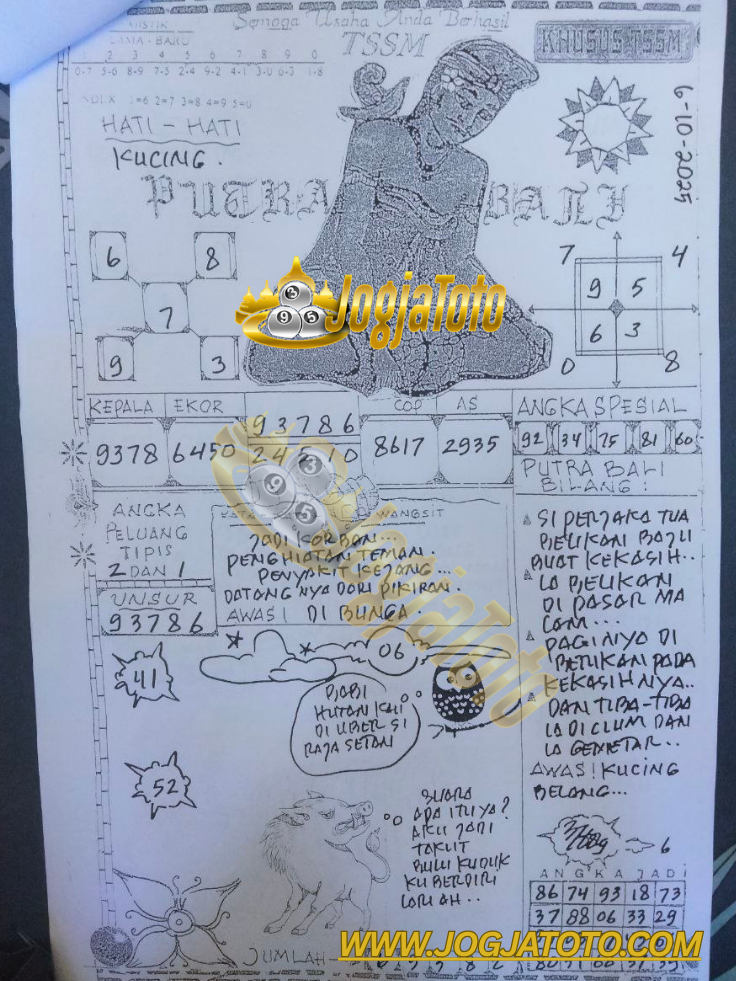 Semoga Usaha Anda Berhasil
TSSM
KHUSUS TSSM
MISTIK
LAMA - BARU
1 2 3 4 5 6 7 8 9 0
0-7 5-6 8-9 7-5 2-4 9-2 4-1 3-0 6-3 1-8
INDEX 1=6 2=7 3=8 4=9 5=0
6-10-2025
HATI - HATI
KUCING.
PUTRA BALI
6 8
7
9 3
7 4
9 5
6 3
0 8
JogjaToto
KEPALA EKOR
9378 6450
93786
24510
COP AS
8617 2935
ANGKA SPESIAL
92 34 75 81 60
PUTRA BALI
BILANG:
SI PERJAKA TUA
BELIKAN BAJU
BUAT KEKASIH..
IA BELIKAN
DI PASAR MA
LAM...
PAGINYA DI
BERIKAN PADA
KEKASIHNYA..
DAN TIBA-TIBA
IA DI CIUM DAN
IA GEMETAR..
AWAS! KUCING
BELANG...
ANGKA
PELUANG
TIPIS
2 DAN 1
UNSUR
93786
WANGSIT
JADI KORBAN...
PENGHIATAN TEMAN.
PENYAKIT KEJANG...
DATANG NYA DARI PIKIRAN.
AWAS! DI BUNGA
JogjaToto
06
41
52
BABI
HUTAN LARI
DI UBER SI
RAJA SETAN
SUARA
APA ITU YA?
AKU JADI
TAKUT
BULU KUDUK
KU BERDIRI
LORIAH..
6
ANGKA JADI
86 74 93 18 73
37 88 06 33 29
JUMLAH
WWW.JOGJATOTO.COM